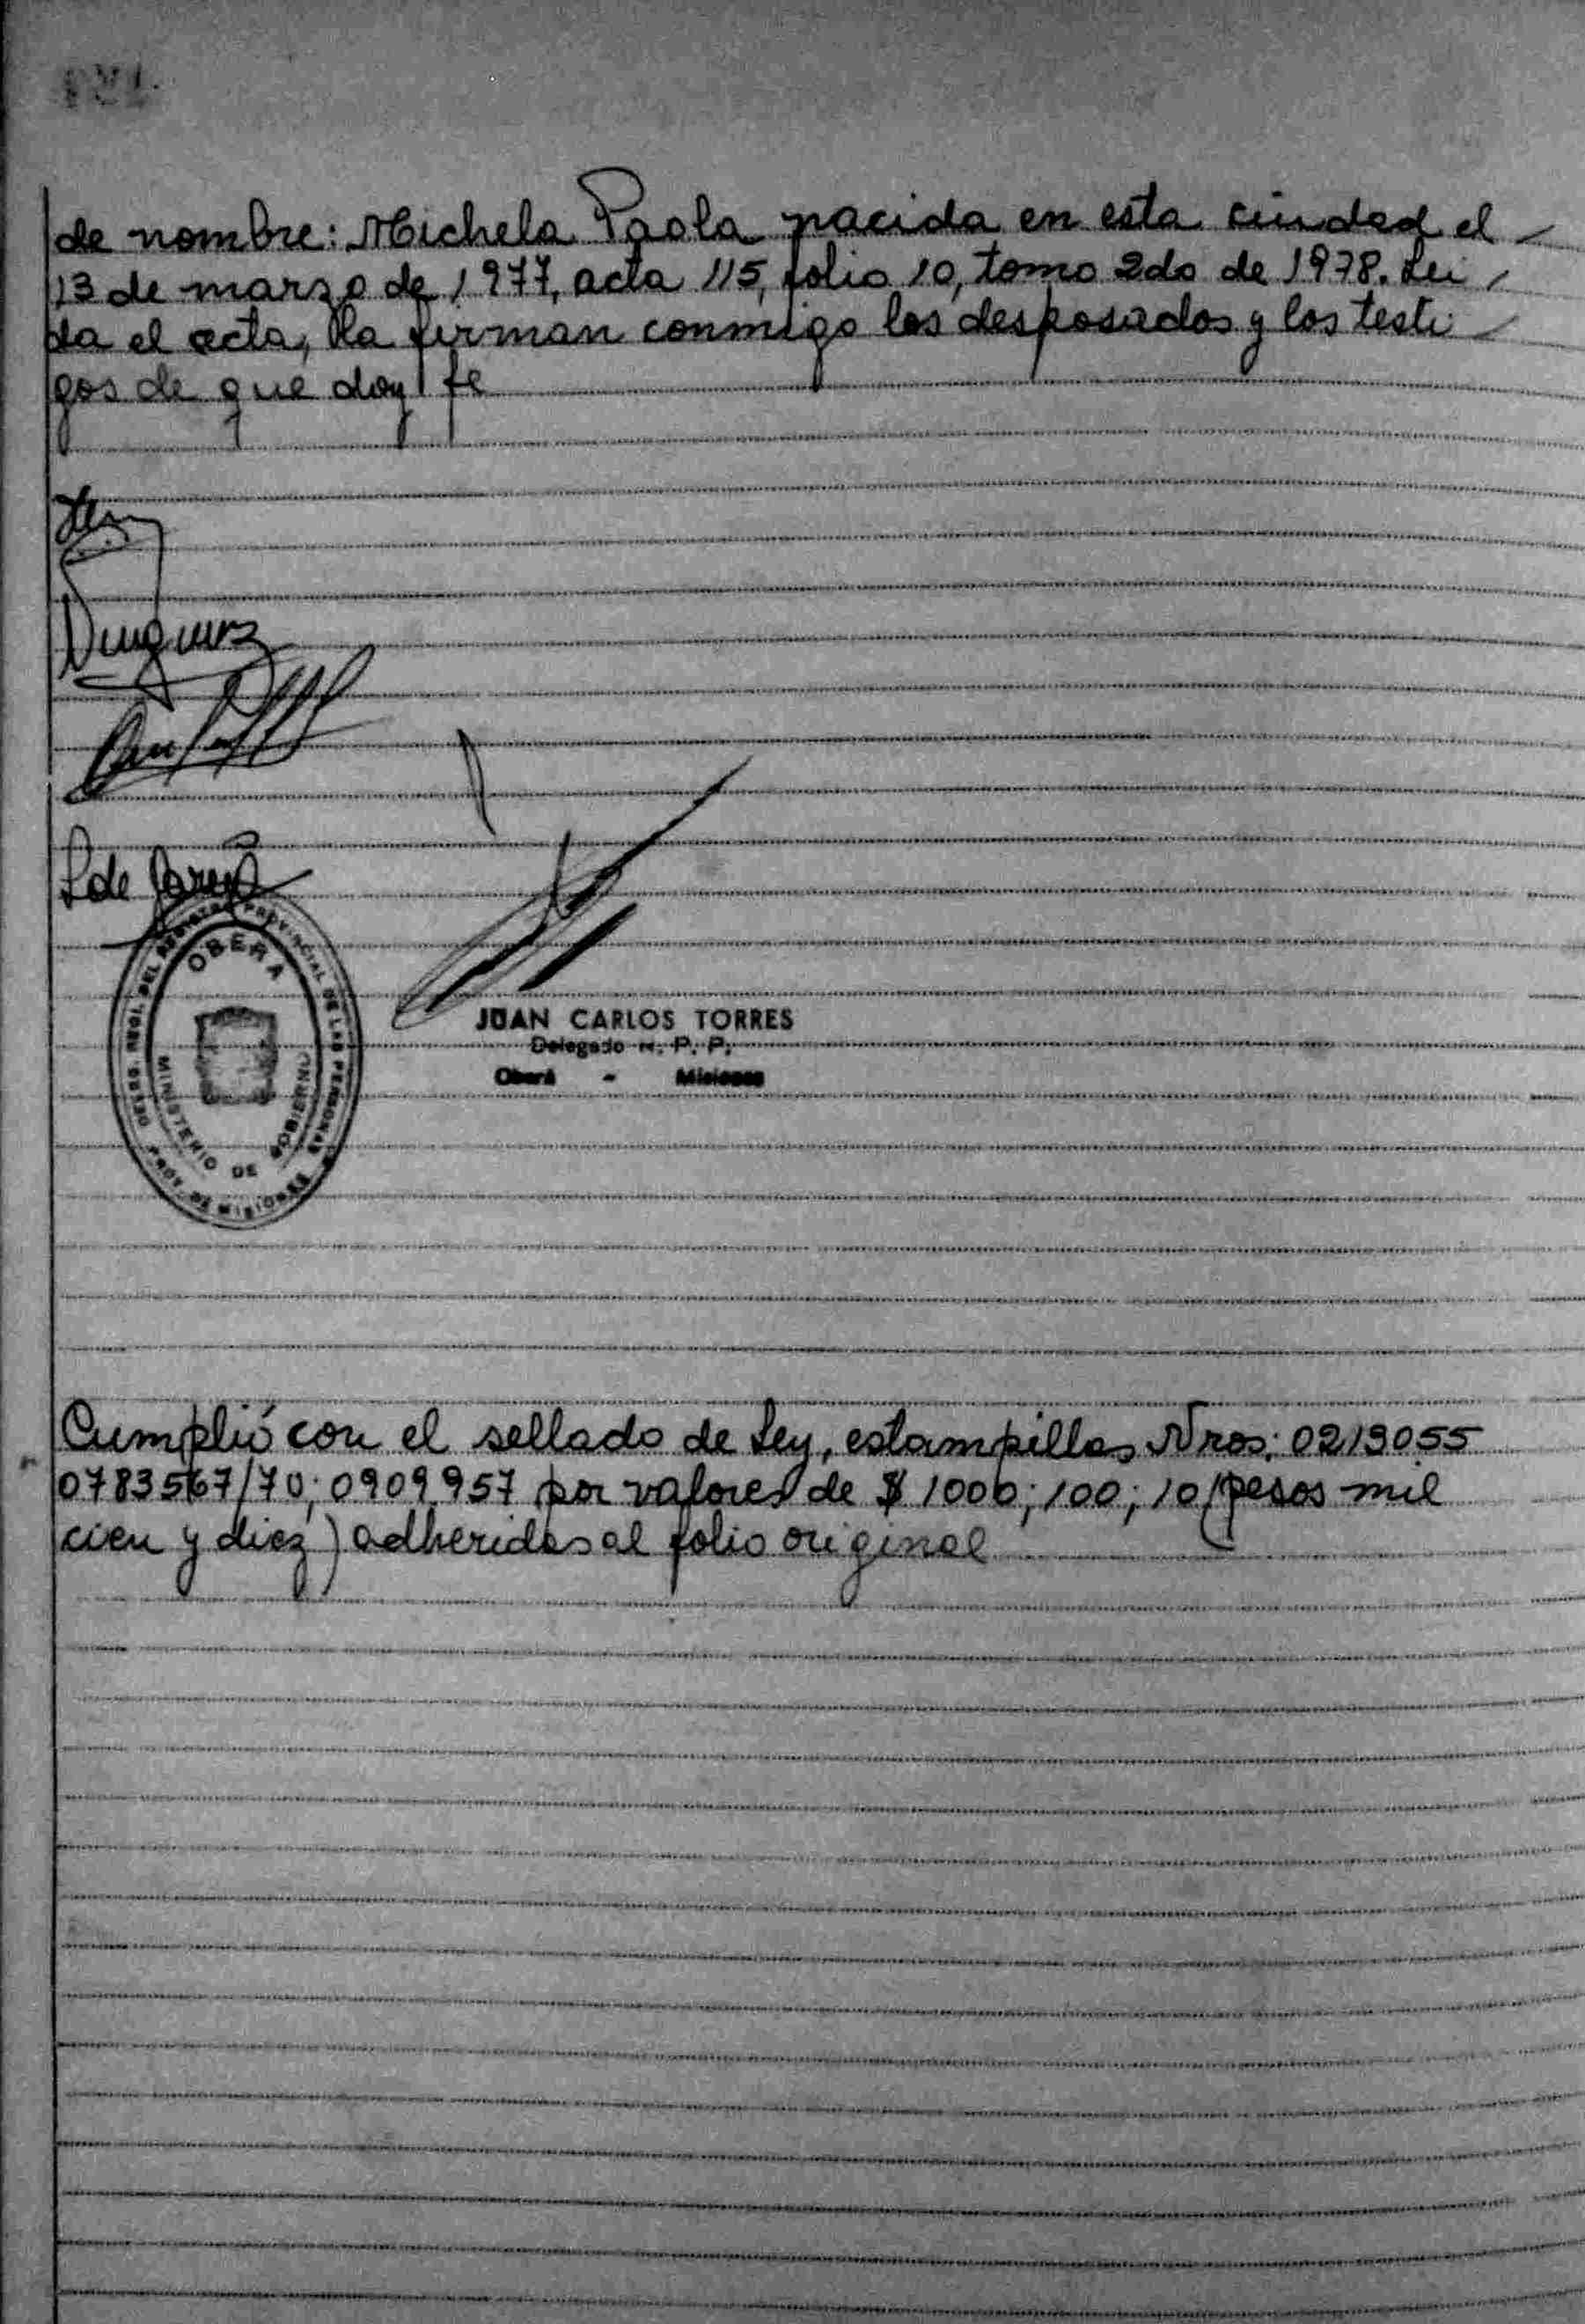 de nombre: Michela Paola nacida en esta ciudad el
13 de marzo de 1977, acta 115, folio 10, tomo 2do de 1978. Lei
da el acta, la firman conmigo los desposados y los testi
gos de que doy fe
OBERA
MINISTERIO DE GOBIERNO
REGISTRO PROVINCIAL DE LAS PERSONAS
PROV. DE MISIONES
JUAN CARLOS TORRES
Delegado R. P. P.
Oberá - Misiones
Cumplió con el sellado de Ley, estampillas Nros: 0219055
0783567/70; 0909957 por valores de $ 1000; 100; 10 (pesos mil
cien y diez) adheridas al folio original